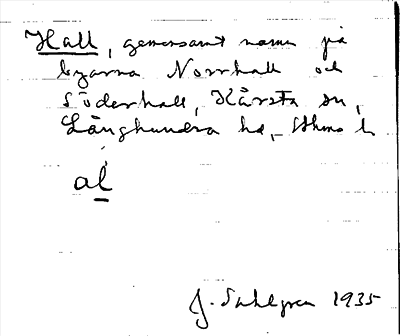 Hall, gemensamt namn på
byarna Norrhall och
Söderhall, Kårsta sn,
Långhundra hd, Sthms l
al
J. Sahlgren 1935